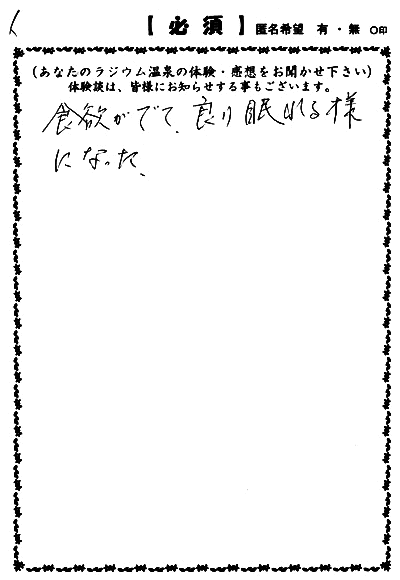 【必須】 匿名希望 有・無 ○印
(あなたのラジウム温泉の体験・感想をお聞かせ下さい)
体験談は、皆様にお知らせする事もございます。
食欲がでて、良り眠れる様
になった、